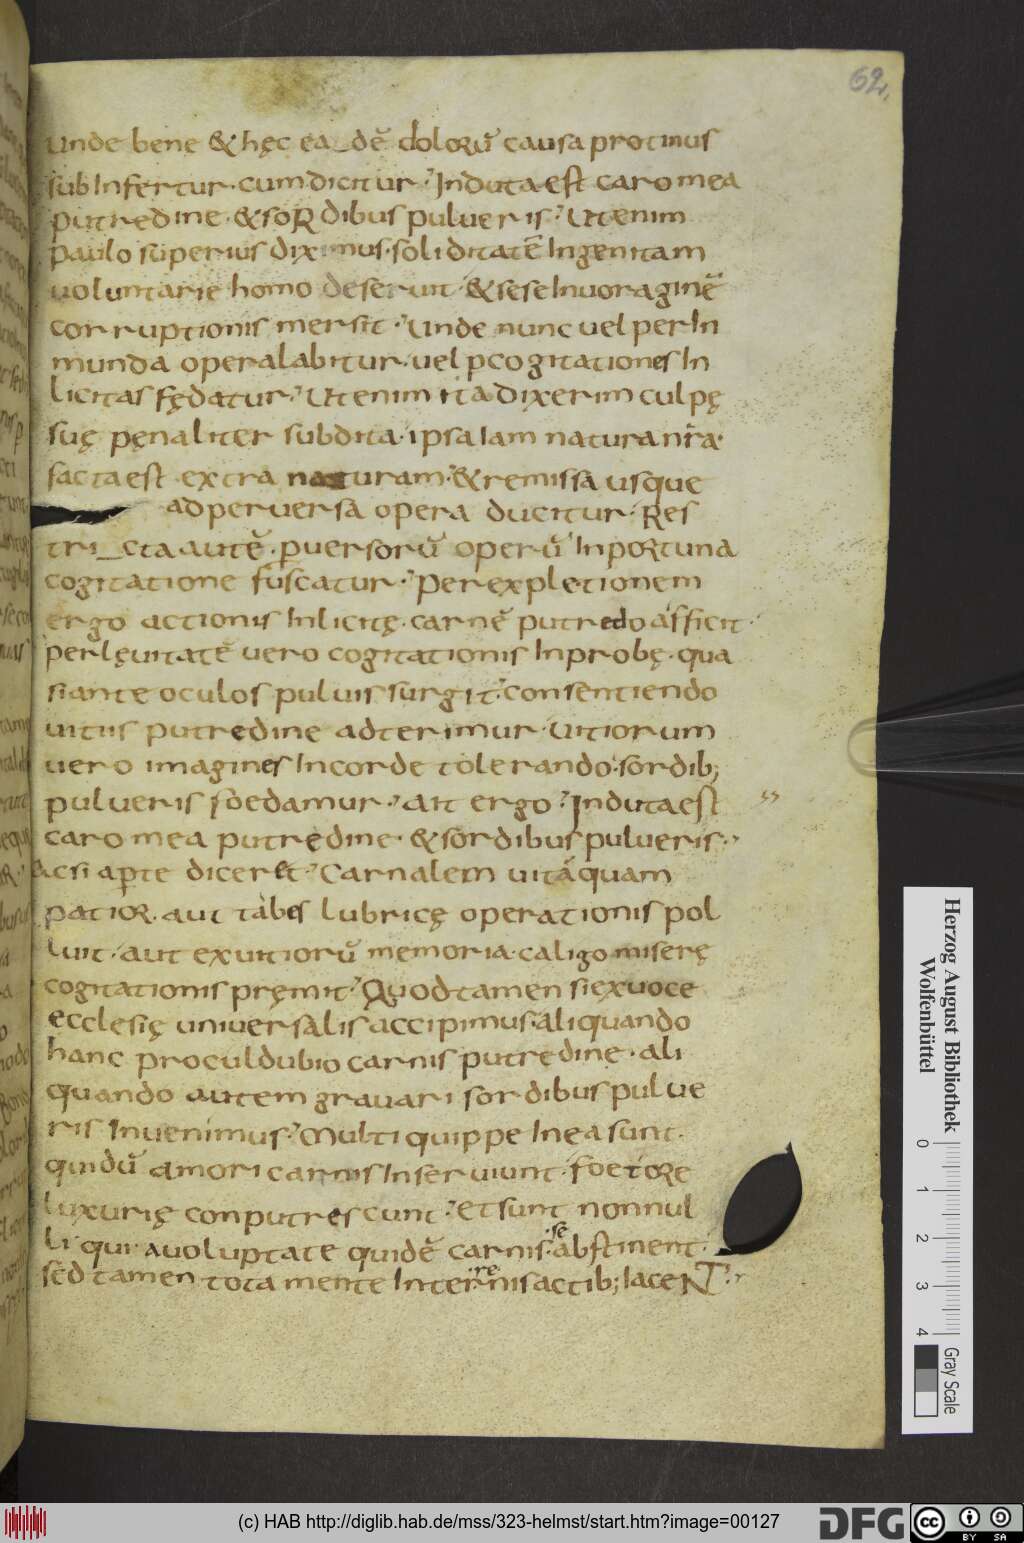 62,
unde bene & hęc ea_dē dolorū causa protinus
subInfertur· cum dicitur· Induta est caro mea
putredine· & sordibus pulueris· Ut enim
paulo superius diximus· soliditatē Ingenitam
uoluntarie homo deseruit & sese Inuoraginē
corruptionis mersit· Unde nunc uel per In
munda opera labitur· uel p cogitationes In
licitas fędatur· Ut enim ita dixerim culpę
suę pęnaliter subdita· ipsa Iam natura nr̄a·
facta est extra naturam· & remissa usque
ad peruersa opera ducitur· Res
tri_cta autē· puersorū operū Inportuna
cogitatione fuscatur· Per expletionem
ergo actionis Inlicitę· carnē putredo afficit·
per lęuitatē uero cogitationis Inprobę· qua
si ante oculos puluis surgit· consentiendo
uitiis putredine adterimur· Uitiorum
uero imagines Incorde tolerando· sordib;
pulueris foedamur· Ait ergo· Induta est
caro mea putredine· & sordibus pulueris·
Acsi apte diceret· Carnalem uitā quam
patior· aut tabes lubricę operationis pol
luit· aut ex uitiorū memoria· caligo miserę
cogitationis pręmit· Quod tamen si ex uoce
ecclesię uniuersalis accipimus· aliquando
hanc proculdubio carnis putredine· ali
quando autem grauari sordibus pulue
ris Inuenimus· Multi quippe In ea sunt·
qui dū amori carnis Inseruiunt· foetore
luxurię conputrescunt· Et sunt nonnul
li qui a uoluptate quidē carnis· se abstinent·
sed tamen tota mente Interrenis actib; IaceNT·
re
Herzog August Bibliothek
Wolfenbüttel
0 1 2 3 4
Gray Scale
(c) HAB http://diglib.hab.de/mss/323-helmst/start.htm?image=00127
DFG
cc
BY SA